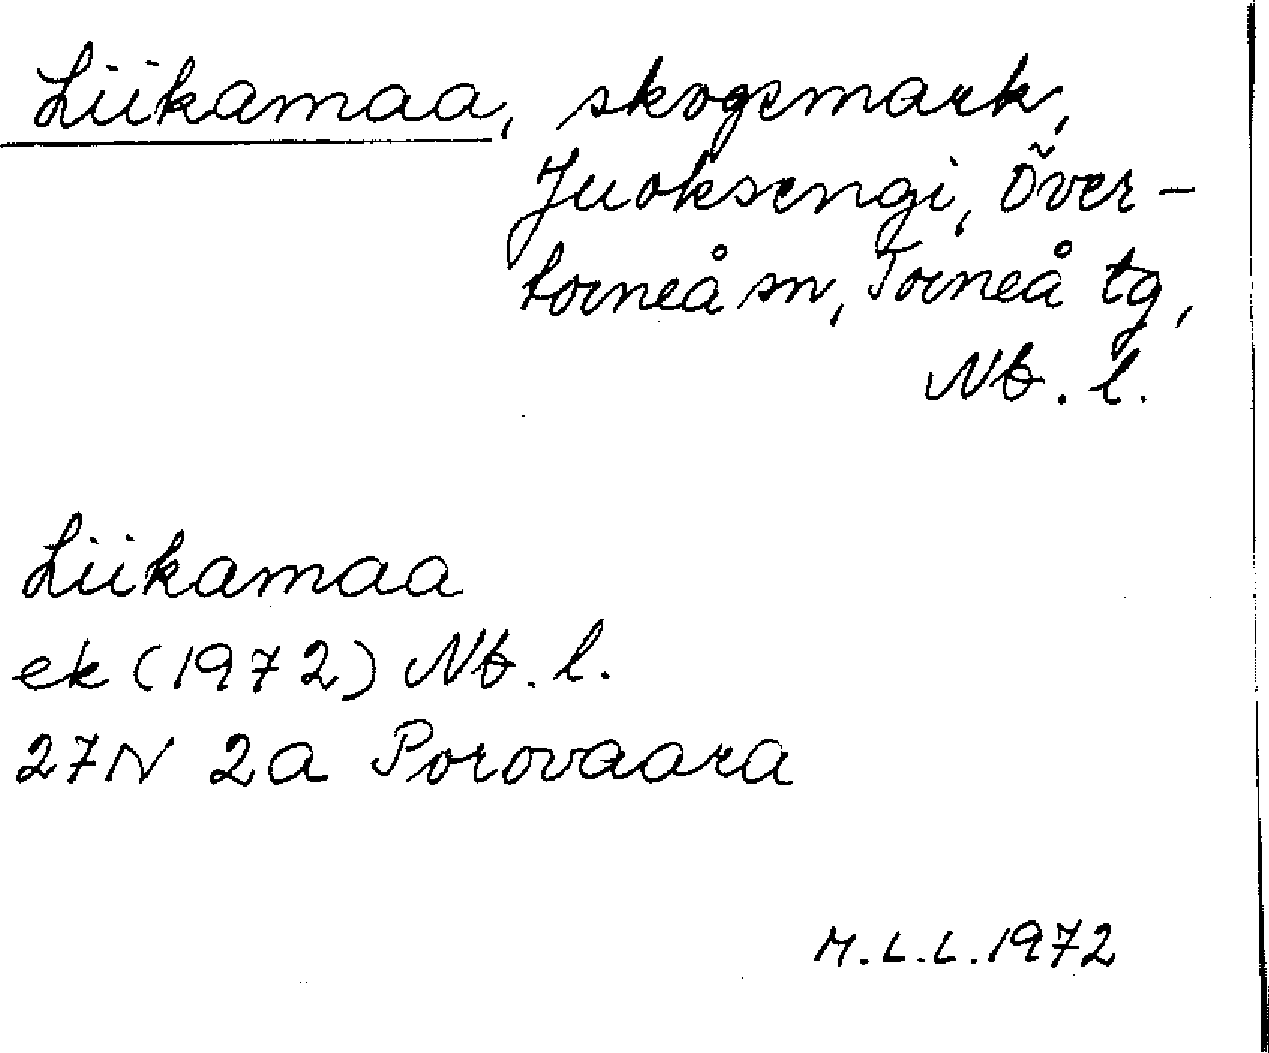 Liikamaa, skogsmark,
Juoksengi, Över-
torneå sn, Torneå tg,
Nb. l.
Liikamaa
ek (1972) Nb. l.
27N 2a Porovaara
M.L.L. 1972